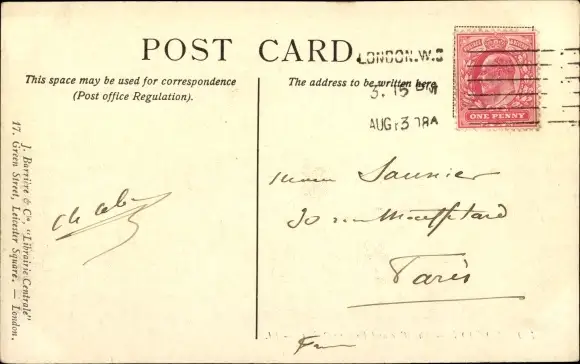 POST CARD
This space may be used for correspondence
(Post office Regulation).
The address to be written here
LONDON.W.C
3. 15 PM
AUG 3 08A
ONE PENNY
Saunier
30 rue Mouffetard
Paris
J. Barrière & Co, "Librairie Centrale"
17, Green Street, Leicester Square. — London.